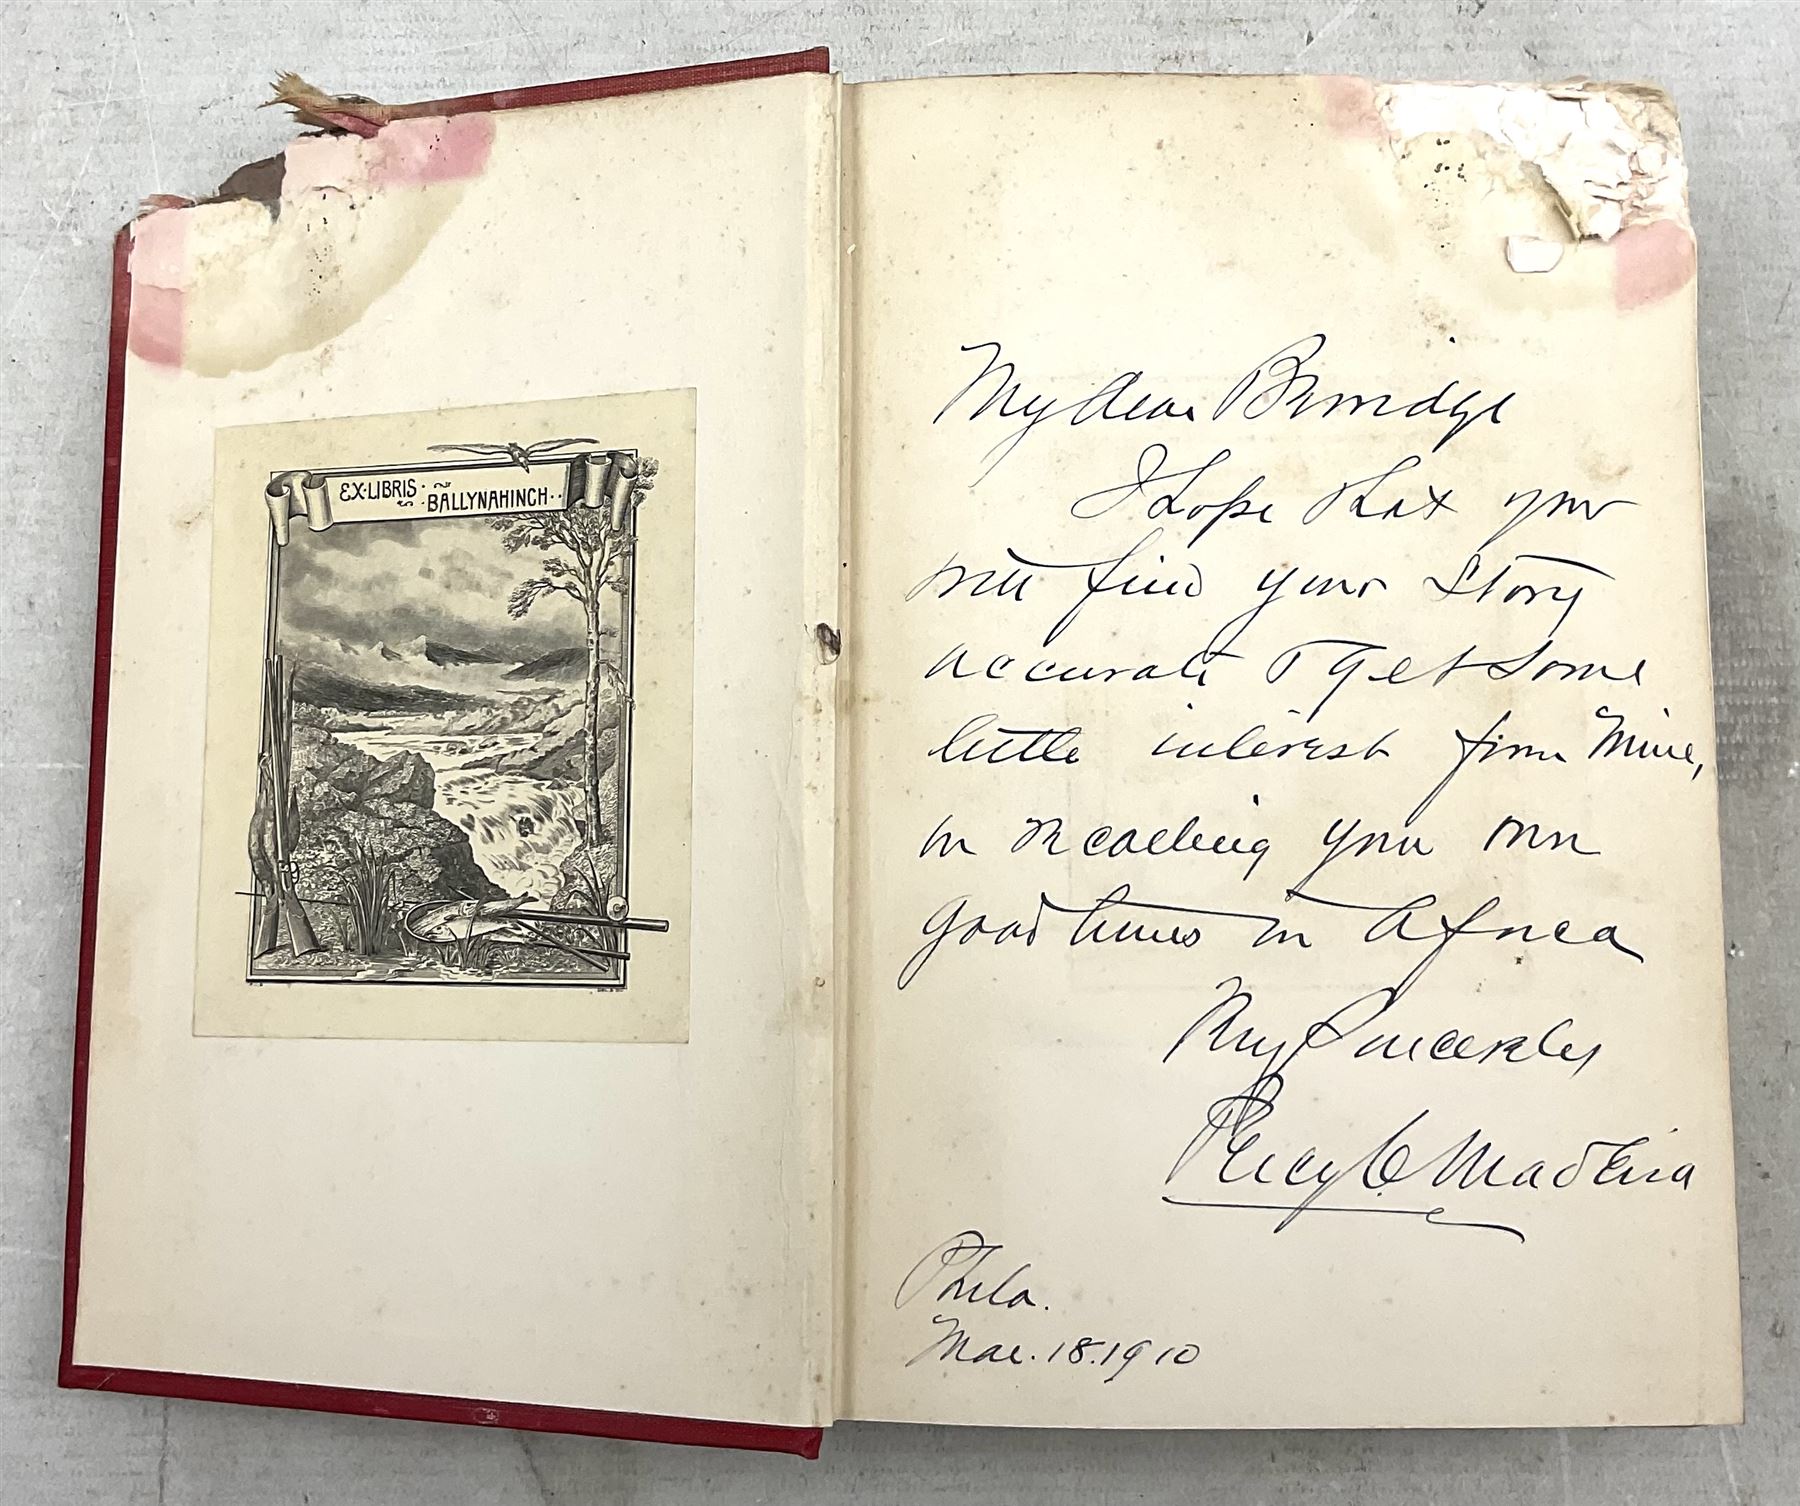 EX·LIBRIS · BALLYNAHINCH · ·
My dear Berridge
I hope that you
will find your story
accurate & get some
little interest from mine,
in recalling your own
good times in Africa
My Sincerely
Percy C. Madeira
Phila.
Mar. 18. 1910